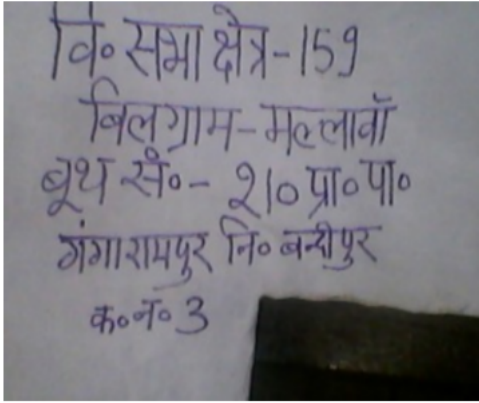 वि० सभा क्षेत्र-159
बिलग्राम-मल्लावाँ
बूथ सं०- 210 प्रा० पा०
गंगारामपुर नि० बन्दीपुर
क० न० 3